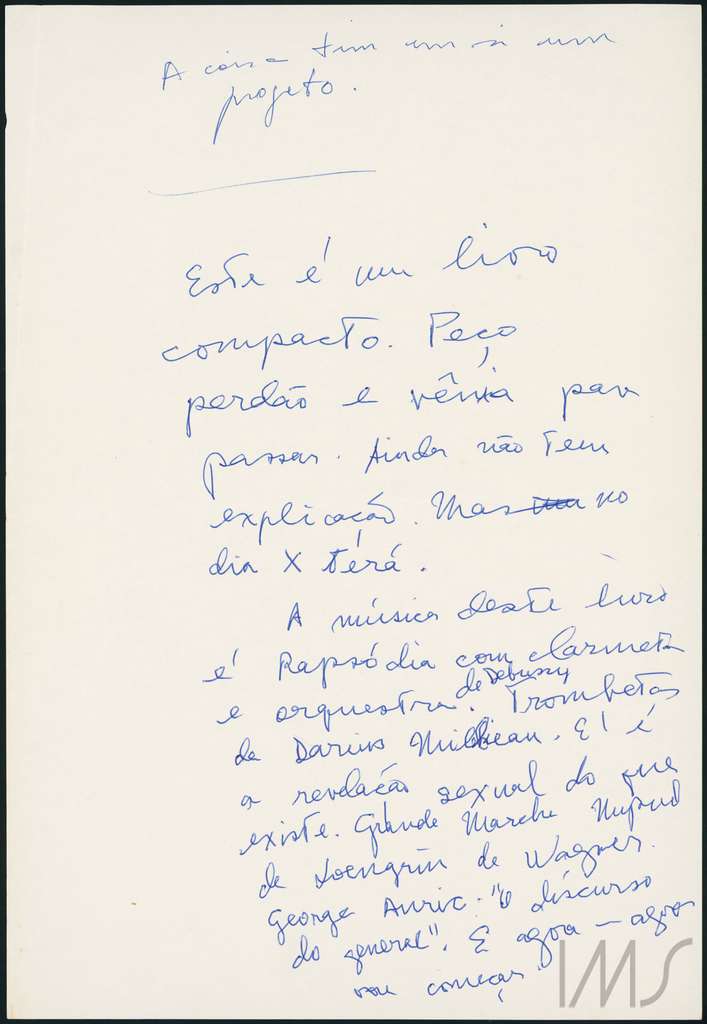 A coisa tem em si um
projeto.
Este é um livro
compacto. Peço
perdão e vênia para
passar. Ainda não tem
explicação. Mas no
dia X terá.
A música deste livro
é Rapsódia com clarineta
e orquestra de Debussy. Trombetas
de Darius Milhaud. E é
a revelação sexual do que
existe. Grande Marche Nupcial
de Loengrin de Wagner.
George Auric: "O discurso
do general". E agora — agora
vou começar.
IMS